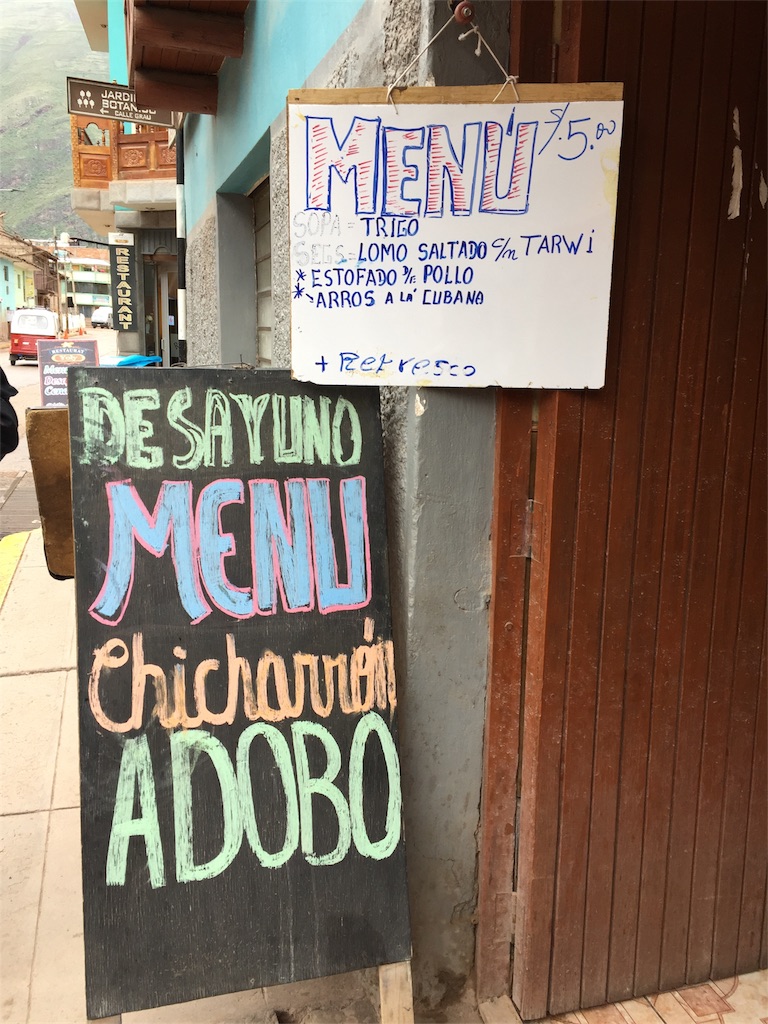 JARDIN
BOTANICO
CALLE GRAU
RESTAURANT
MENÚ S/.5.00
SOPA = TRIGO
SEGS = LOMO SALTADO c/n TARWi
* ESTOFADO D/E POLLO
* ARROS A LA CUBANA
+ Refresco
RESTAURAT
Menu
DESAYUNO
MENU
Chicharrón
ADOBO